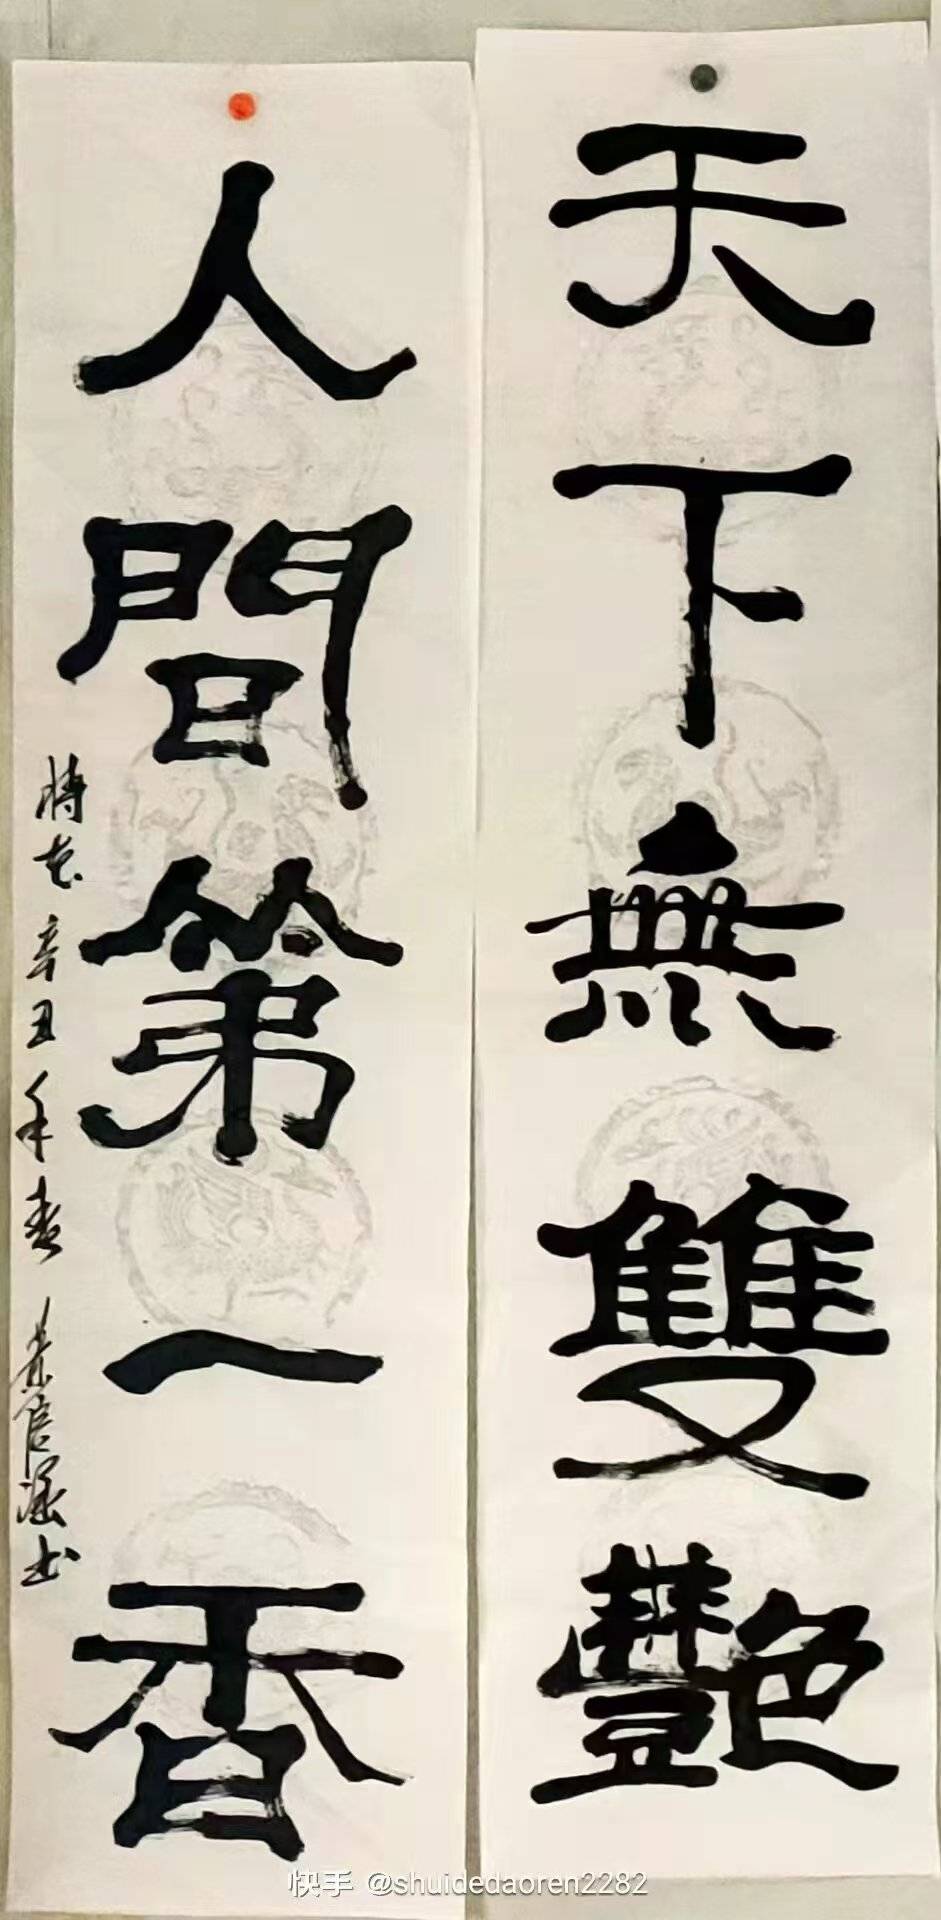 天下無雙艷
人間第一香
辛丑年春
書
快手 @shuidedaoren2282